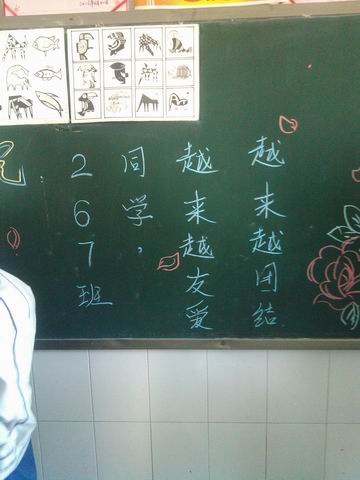 267班
同学，
越来越友爱
越来越团结